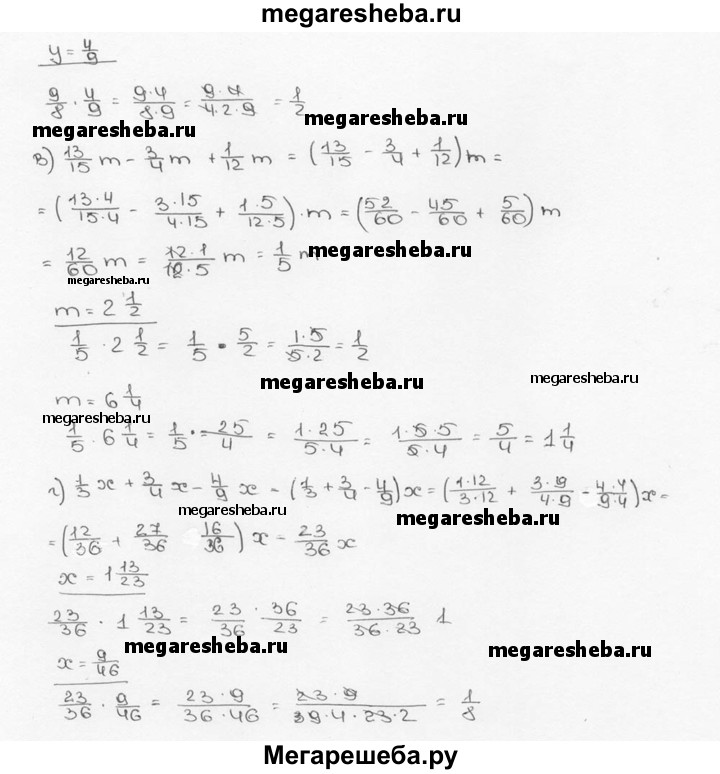 megaresheba.ru
y = 4/9
9/8 · 4/9 = 9·4/8·9 = 9·4/4·2·9 = 1/2
megaresheba.ru megaresheba.ru
в) 13/15 m - 3/4 m + 1/12 m = (13/15 - 3/4 + 1/12) m =
= (13·4/15·4 - 3·15/4·15 + 1·5/12·5) · m = (52/60 - 45/60 + 5/60) m
= 12/60 m = 12·1/12·5 m = 1/5 m
megaresheba.ru megaresheba.ru
m = 2 1/2
1/5 · 2 1/2 = 1/5 · 5/2 = 1·5/5·2 = 1/2
megaresheba.ru megaresheba.ru
m = 6 1/4
megaresheba.ru
1/5 · 6 1/4 = 1/5 · 25/4 = 1·25/5·4 = 1·5·5/5·4 = 5/4 = 1 1/4
г) 1/3 x + 3/4 x - 4/9 x = (1/3 + 3/4 - 4/9) x = (1·12/3·12 + 3·9/4·9 - 4·4/9·4) x =
megaresheba.ru megaresheba.ru
= (12/36 + 27/36 16/36) x = 23/36 x
x = 1 13/23
23/36 · 1 13/23 = 23/36 · 36/23 = 23·36/36·23 1
megaresheba.ru megaresheba.ru
x = 9/46
23/36 · 9/46 = 23·9/36·46 = 23·9/9·4·23·2 = 1/8
Мегарешеба.ру